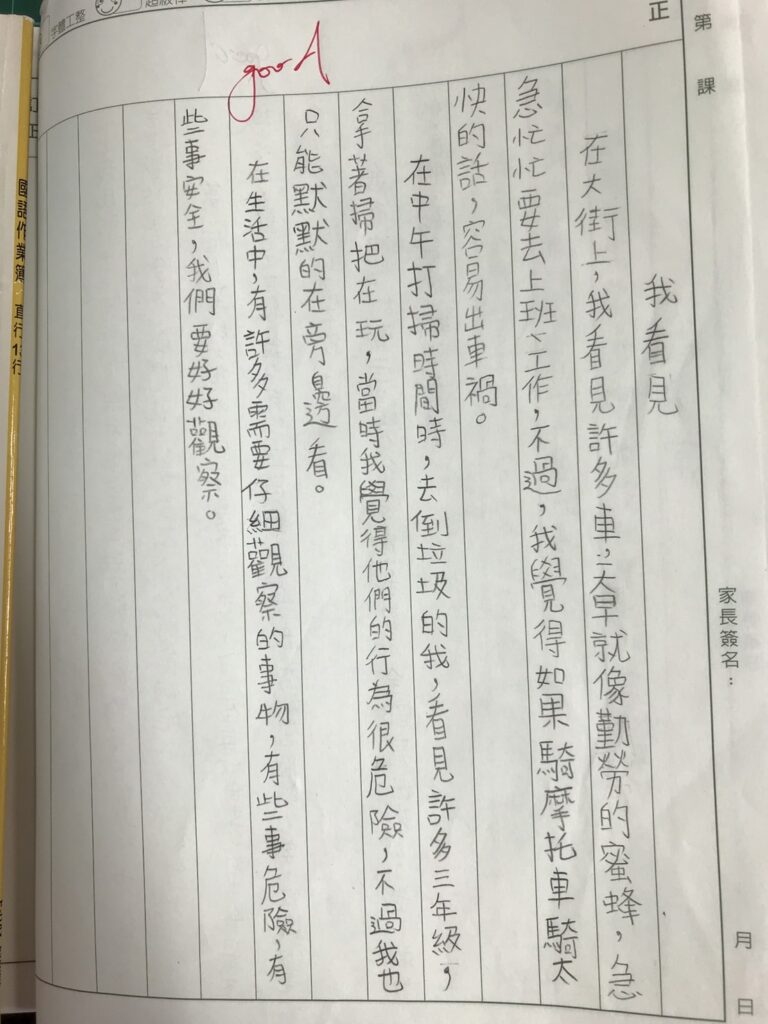 第　課
家長簽名：
月　日
正
我看見
在大街上，我看見許多車，一大早就像勤勞的蜜蜂，急
急忙忙要去上班、工作，不過，我覺得如果騎摩托車騎太
快的話，容易出車禍。
在中午打掃時間時，去倒垃圾的我，看見許多三年級，
拿著掃把在玩，當時我覺得他們的行為很危險，不過我也
只能默默的在旁邊看。
在生活中，有許多需要仔細觀察的事物，有些事危險，有
些事安全，我們要好好觀察。
good
字體工整
超級棒
訂正
國語作業簿 直行13行